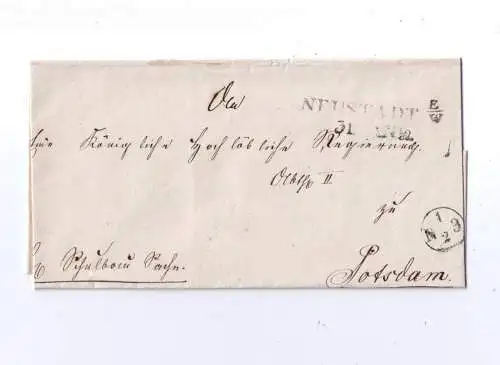 An
NEUSTADT E/W
31
Eine Königliche Hochlöbliche Regierung.
Abthlg II
zu
N 1/2 3
Schulbau Sache.
Potsdam.